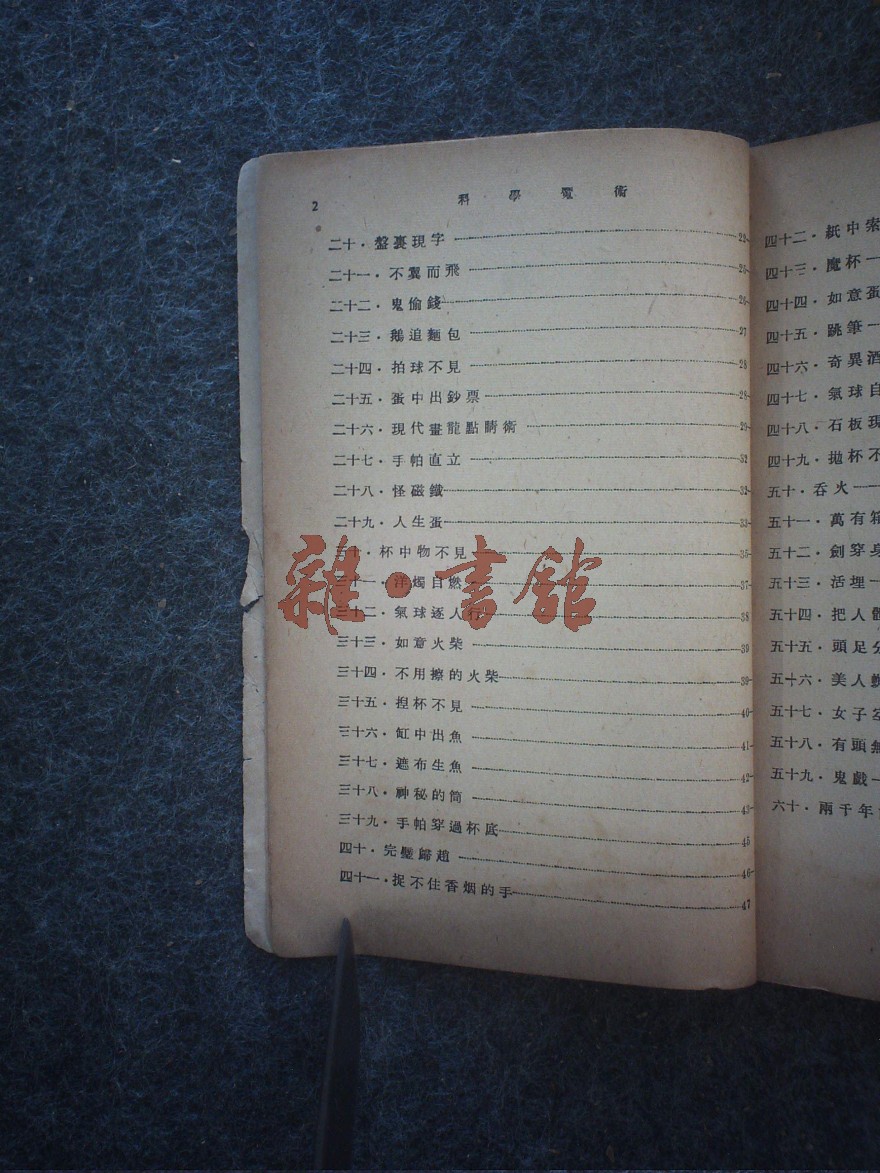 2
科學魔術
二十．盤裏現字
二十一．不翼而飛
二十二．鬼偷錢 26
二十三．鵝追麵包 27
二十四．拍球不見 28
二十五．蛋中出鈔票 28
二十六．現代畫龍點睛術 29
二十七．手帕直立 32
二十八．怪磁鐵 32
二十九．人生蛋 33
三十．杯中物不見 35
三十一．洋燭自燃 37
三十二．氣球逐人行 38
三十三．如意火柴 39
三十四．不用擦的火柴 39
三十五．捏杯不見 40
三十六．缸中出魚 41
三十七．遮布生魚 42
三十八．神秘的筒 43
三十九．手帕穿過杯底 45
四十．完璧歸趙 46
四十一．捉不住香烟的手 47
雜·書舘
四十二．紙中索
四十三．魔杯
四十四．如意蛋
四十五．跳筆
四十六．奇異酒
四十七．氣球自
四十八．石板現
四十九．拋杯不
五十．吞火
五十一．萬有箱
五十二．劍穿身
五十三．活埋
五十四．把人體
五十五．頭足分
五十六．美人
五十七．女子
五十八．有頭無
五十九．鬼戲
六十．兩千年